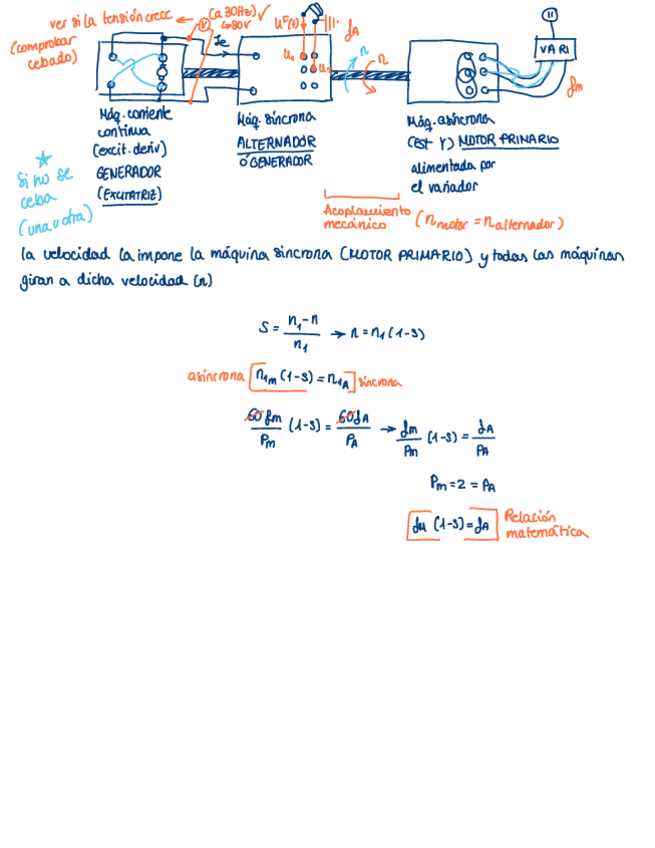 ver si la tensión crece
(comprobar
cebado)
(a 30Hz) ✓
V
Ie
u=f(t)
fA
u1
n
n
VARI
fm
Máq. corriente
continua
(excit. deriv)
GENERADOR
(EXCITATRIZ)
Máq. síncrona
ALTERNADOR
ó GENERADOR
Máq. asíncrona
(est Y) MOTOR PRIMARIO
alimentada por
el variador
Si no se
ceba
(una u otra)
Acoplamiento
mecánico
(nmotor = nalternador)
la velocidad la impone la máquina síncrona (MOTOR PRIMARIO) y todas las máquinas
giran a dicha velocidad (n)
S = (n1 - n)/n1 → n = n1(1-s)
asíncrona [n1m (1-s) = n1A] síncrona
60fm/Pm (1-s) = 60fA/PA → fm/Pm (1-s) = fA/PA
Pm = 2 = PA
[fM (1-s) = fA] Relación
matemática